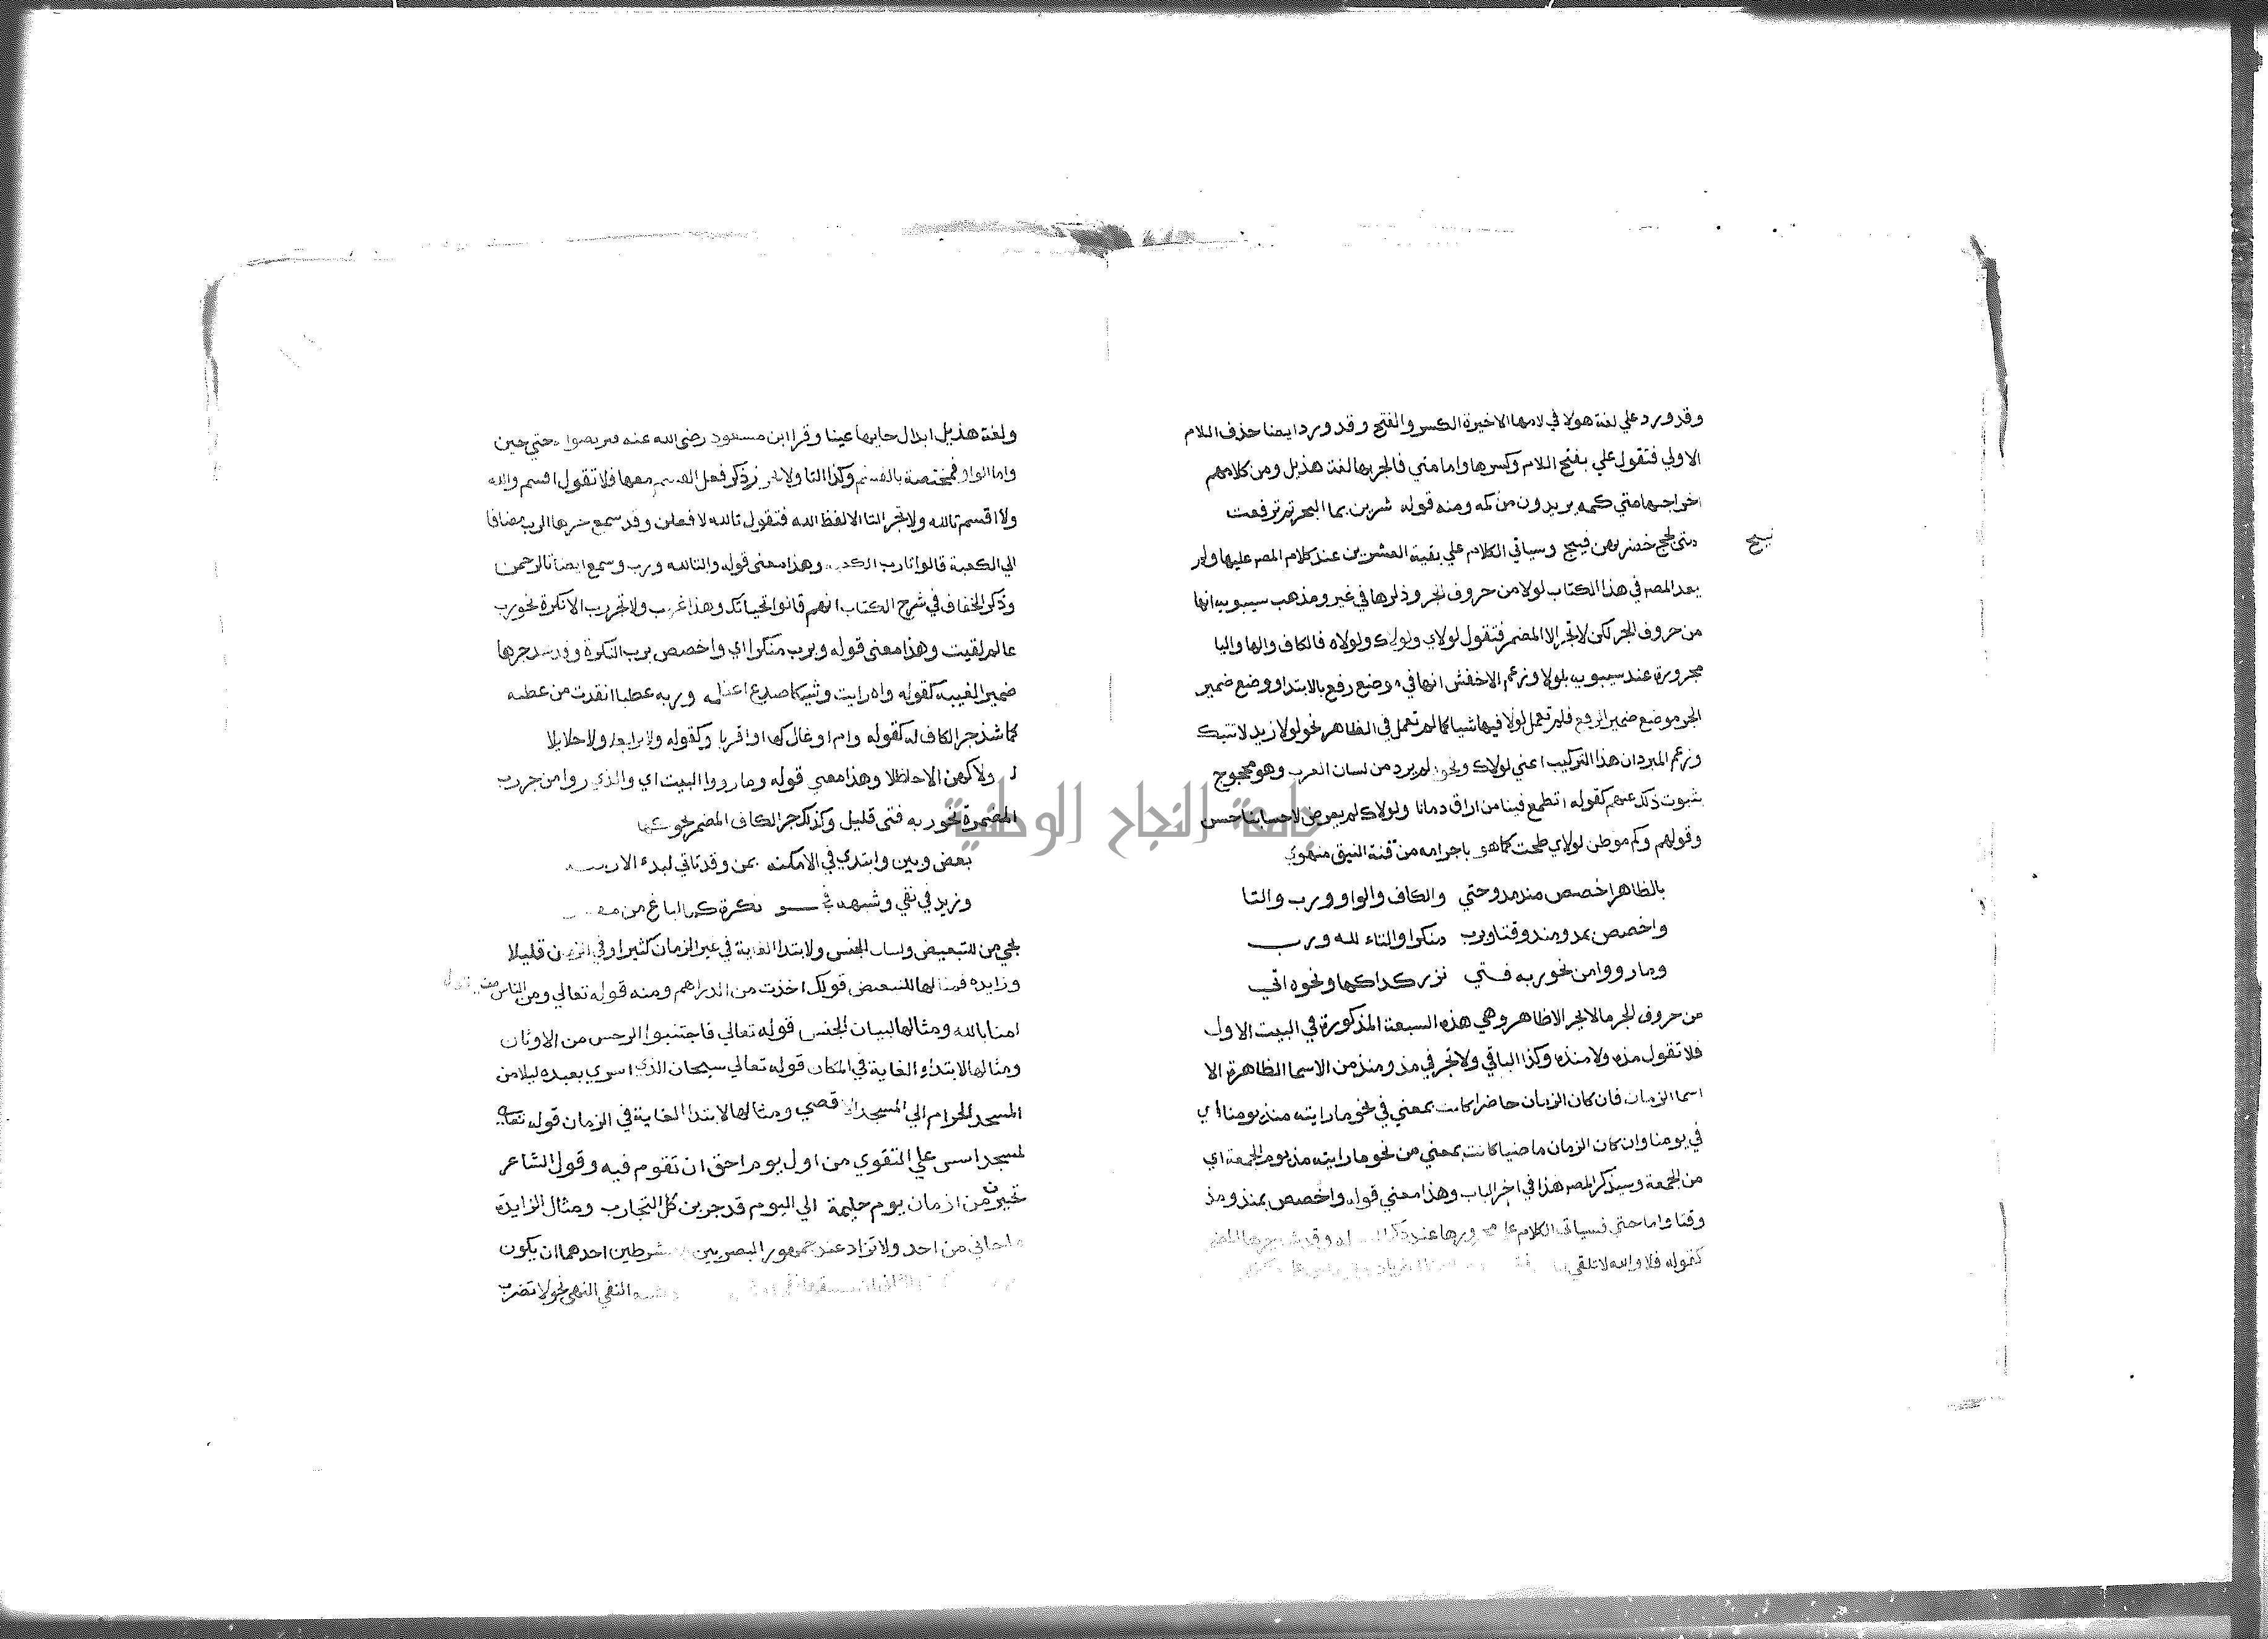 وقد ورد علي لغة هولا في لامها الاخيرة الكسر والفتح وقد ورد ايضا حذف اللام
الاولي فتقول علي بفتح اللام وكسرها واما متي فالجر بها لغة هذيل ومن كلامهم
اخراجها متي كمه يريدون من كمه ومنه قوله شربن بما البحر ثم ترفعت
متي لجج خضر لهن نييج وسياتي الكلام علي بقية العشرين عند كلام المصه عليها ولم
نييج
يعد المصه في هذا الكتاب لولا من حروف الجر وذكرها في غيره ومذهب سيبويه انها
من حروف الجر لكن لا تجر الا المضمر فتقول لولاي ولولاك ولولاه فالكاف والها واليا
مجرورة عند سيبويه بلولا وزعم الاخفش انها في موضع رفع بالابتدا ووضع ضمير
الجر موضع ضمير الرفع فلم تعمل لولا فيها شيا كما لم تعمل في الظاهر نحو لولا زيد لاتيتك
وزعم المبرد ان هذا التركيب اعني لولاك ونحوه لم يرد من لسان العرب وهو محجوج
بثبوت ذلك عنهم كقوله اتطمع فينا من اراق دمانا ولولاك لم يعرض لاحسابنا حسن
وقولهم وكم موطن لولاي طحت كما هو باجرامه من قنة النيق منهوي
بالظاهر اخصص منذ مذ وحتي والكاف والواو ورب والتا
واخصص بمذ ومنذ وقتا وبرب منكرا والتاء لله ورب
وما رووا من نحو ربه فتي نزر كذا كها ونحوه اتي
من حروف الجر ما لا يجر الا ظاهر وهي هذه السبعة المذكورة في البيت الاول
فلا تقول مذه ولا منذه وكذا الباقي ولا تجر في مذ ومنذ من الاسما الظاهرة الا
اسما الزمان فان كان الزمان حاضرا كانت بمعني في نحو ما رايته منذ يومنا اي
في يومنا وان كان الزمان ماضيا كانت بمعني من نحو ما رايته مذ يوم الجمعة اي
من الجمعة وسيذكر المصه هذا في اخر الباب وهذا معني قوله واخصص بمنذ ومذ
وقتا واما حتي فسياتي الكلام علي مجرورها عند ذكر له وقد شذ جرها للضمير
كقوله فلا والله لا تلقي
ولغة هذيل ابدال حايها عينا وقرا ابن مسعود رضي الله عنه فتربصوا حتي حين
واما الواو فمختصة بالقسم وكذا التا ولا يجوز ذكر فعل القسم معها فلا تقول اقسم والله
ولا اقسم تالله ولا تجر التا الا لفظ الله فتقول تالله لافعلن وقد سمع جرها الرب مضافا
الي الكعبة قالوا تارب الكعبة وهذا معني قوله والتالله ورب وسمع ايضا تالرحمن
وذكر الخفاف في شرح الكتاب انهم قالوا تحياتك وهذا غريب ولا تجر رب الا نكرة نحو رب
عالم لقيت وهذا معني قوله وبرب منكرا اي واخصص برب النكرة وقد شذ جرها
ضمير الغيبة كقوله واه رايت وشيكا صدع اعظمه وربه عطبا انقذت من عطبه
كما شذ جر الكاف له كقوله وام اوعال كها او اقربا وكقوله ولا تري بعلا ولا حلايلا
ولا كهن الا حاظلا وهذا معني قوله وما رووا البيت اي والذي روا من جر رب
المضمرة نحو ربه فتي قليل وكذلك جر الكاف المضمر نحو كها
بعض وبين وابتدي في الامكنه بمن وقد تاتي لبدء الازمنه
وزيد في نفي وشبهه فجر نكرة كما لباغ من مفر
تجي من للتبعيض ولبيان الجنس ولابتدا الغاية في غير الزمان كثيرا وفي الزمان قليلا
وزايده فمثالها للتبعيض قولك اخذت من الدراهم ومنه قوله تعالي ومن الناس من يقول
امنا بالله ومثالها لبيان الجنس قوله تعالي فاجتنبوا الرجس من الاوثان
ومثالها لابتداء الغاية في المكان قوله تعالي سبحان الذي اسري بعبده ليلا من
المسجد الحرام الي المسجد الاقصي ومثالها لابتدا الغاية في الزمان قوله تعالي
لمسجد اسس علي التقوي من اول يوم احق ان تقوم فيه وقول الشاعر
تخيرن من ازمان يوم حليمة الي اليوم قد جربن كل التجارب ومثال الزايدة
ما جاني من احد ولا تزاد عند جمهور البصريين الا بشرطين احدهما ان يكون
النفي النهي نحو لا تضرب
جامعة النجاح الوطنية